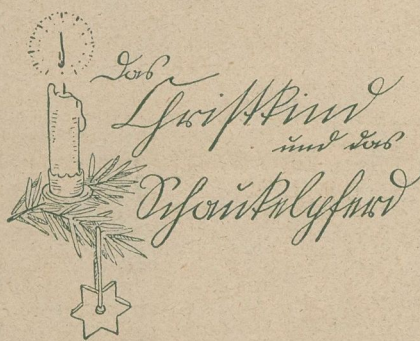 Das
Christkind
und das
Schaukelpferd